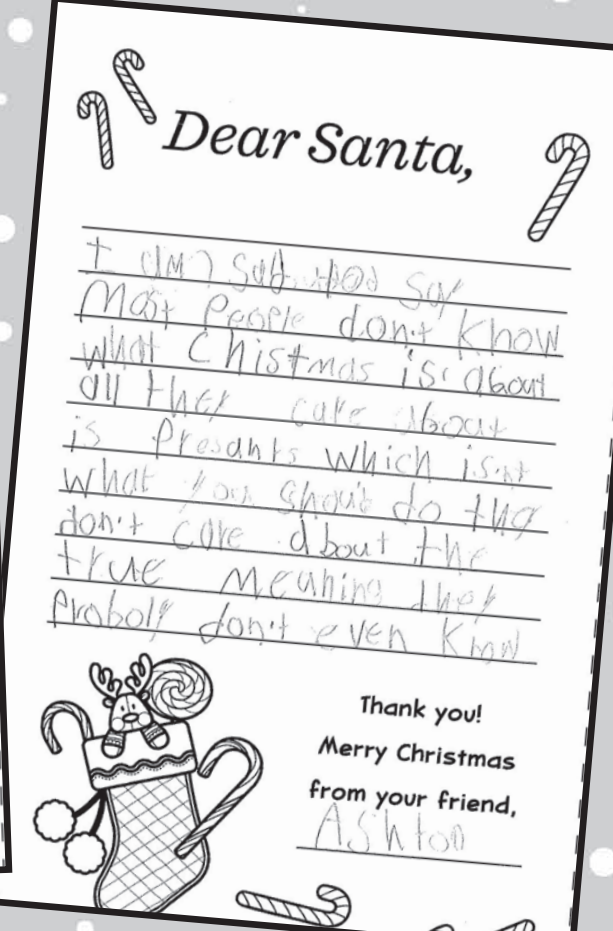 Dear Santa,
I am say
Most People don't know
what Chistmas is about
all they care about
is Presants which isn't
what you do
don't care about the
true meaning they
Proboly don't even know
Thank you!
Merry Christmas
from your friend,
Ashton